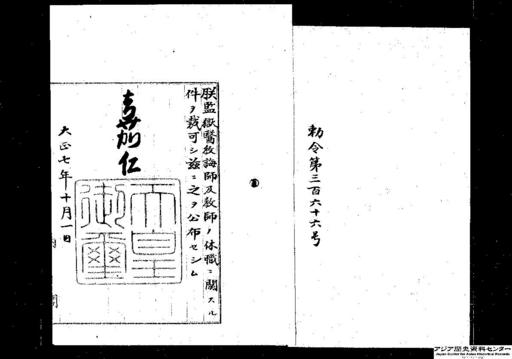 勅令第三百六十六号
朕監獄醫教誨師及教師ノ休職ニ關スル
件ヲ裁可シ茲ニ之ヲ公布セシム
嘉仁
天皇
御璽
大正七年十月一日
アジア歴史資料センター
Japan Center for Asian Historical Records